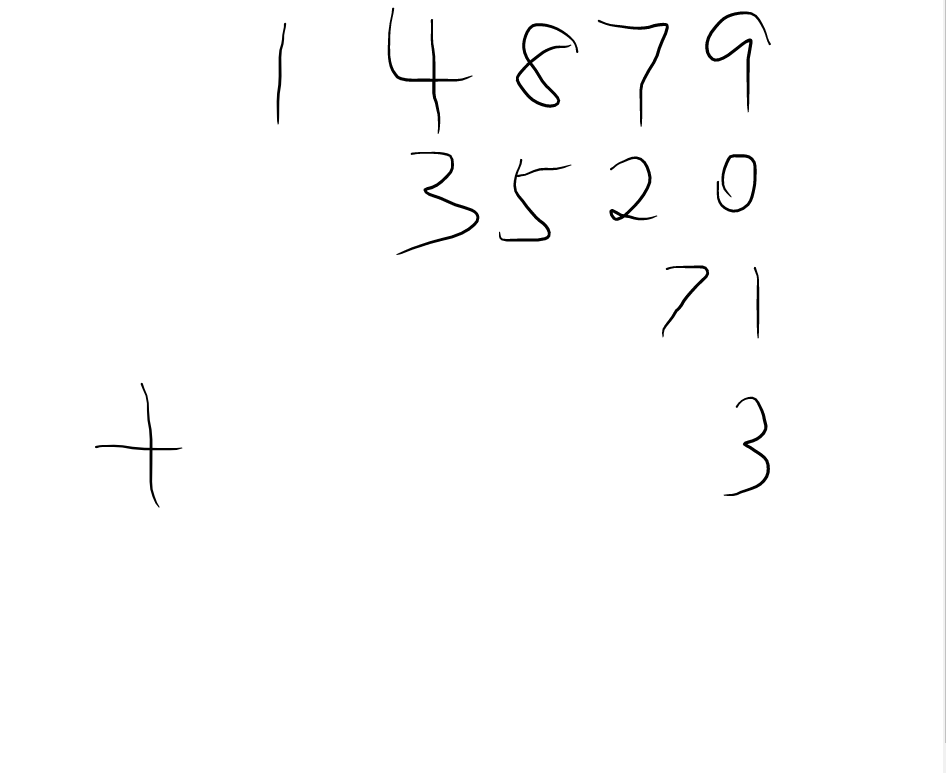 14879
3520
71
+ 3